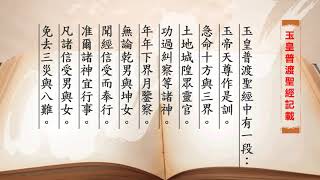 玉皇普渡聖經記載
玉皇普渡聖經中有一段：
玉帝天尊作是訓。
急命十方與三界。
土地城隍眾靈官。
功過糾察等諸神。
年年下界月鑒察。
無論乾男與坤女。
聞經信受而奉行。
准爾諸神宜行事。
凡諸信受男與女。
免去三災與八難。